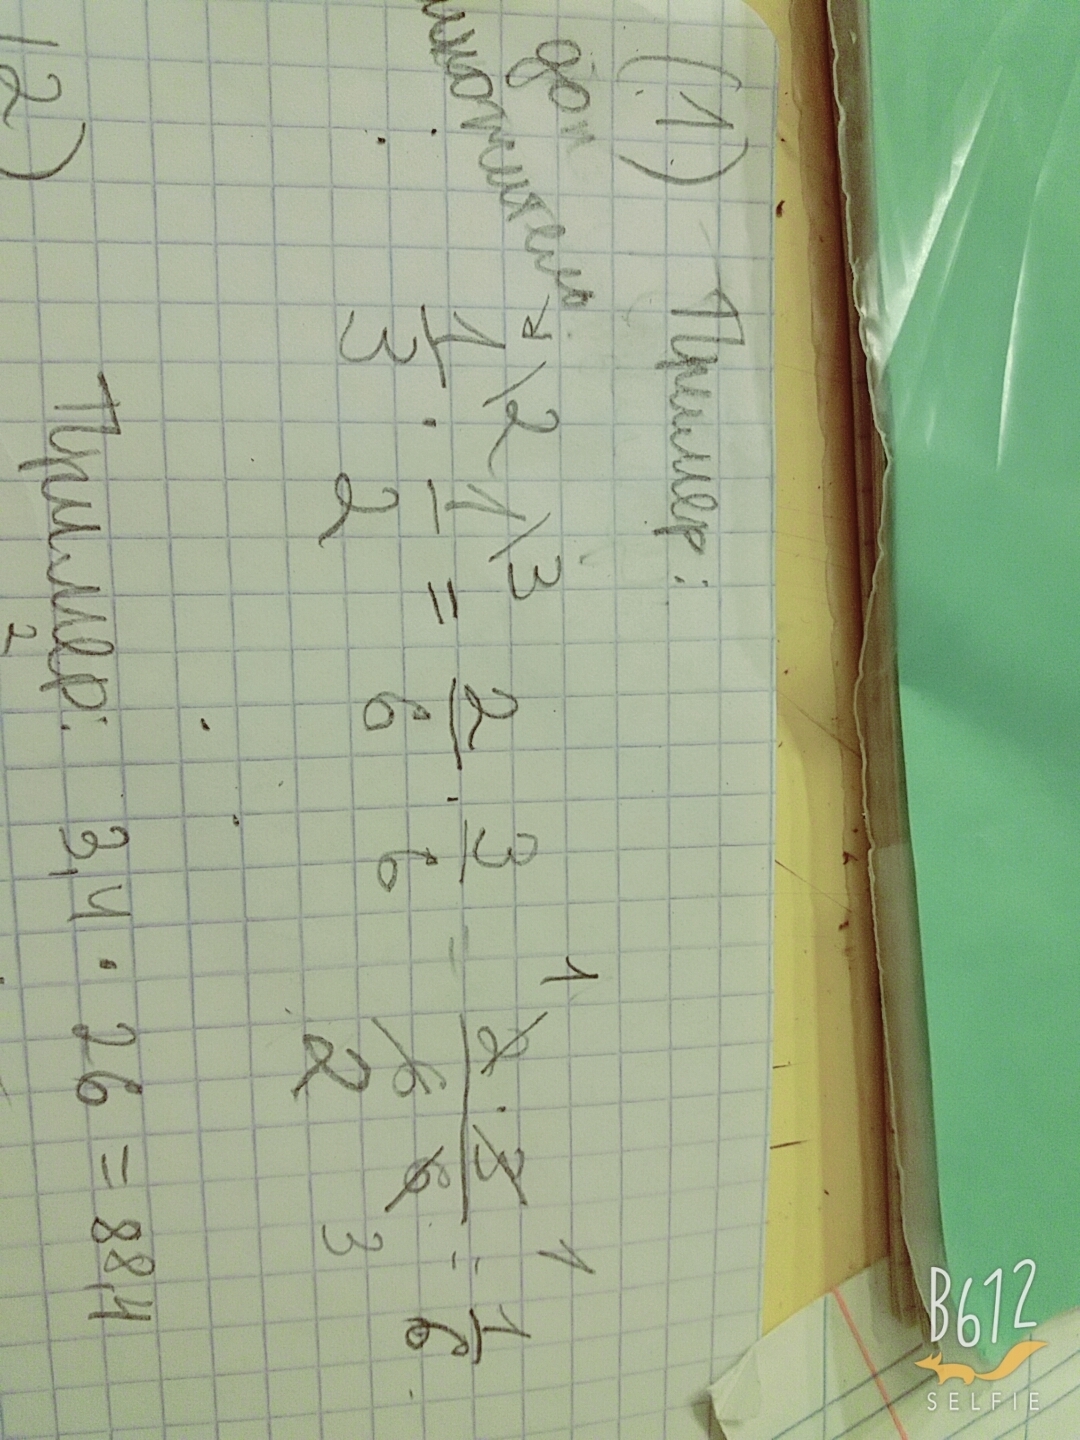 (1) Пример:
доп
множитель
1\2 / 3 · 1\3 / 2 = 2/6 · 3/6 = 2 · 3 / 6 6 = 1/6
1 1
2 3
12) Пример: 3,4 · 26 = 88,4
2
B612
SELFIE